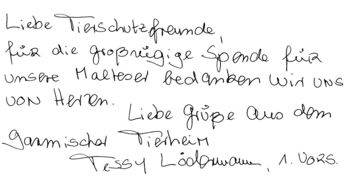 Liebe Tierschutzfreunde,
für die großzügige Spende für
unsere Malteser bedanken wir uns
von Herzen.
Liebe Grüße aus dem
Garmischer Tierheim
Tessy Lödermann, 1. Vors.